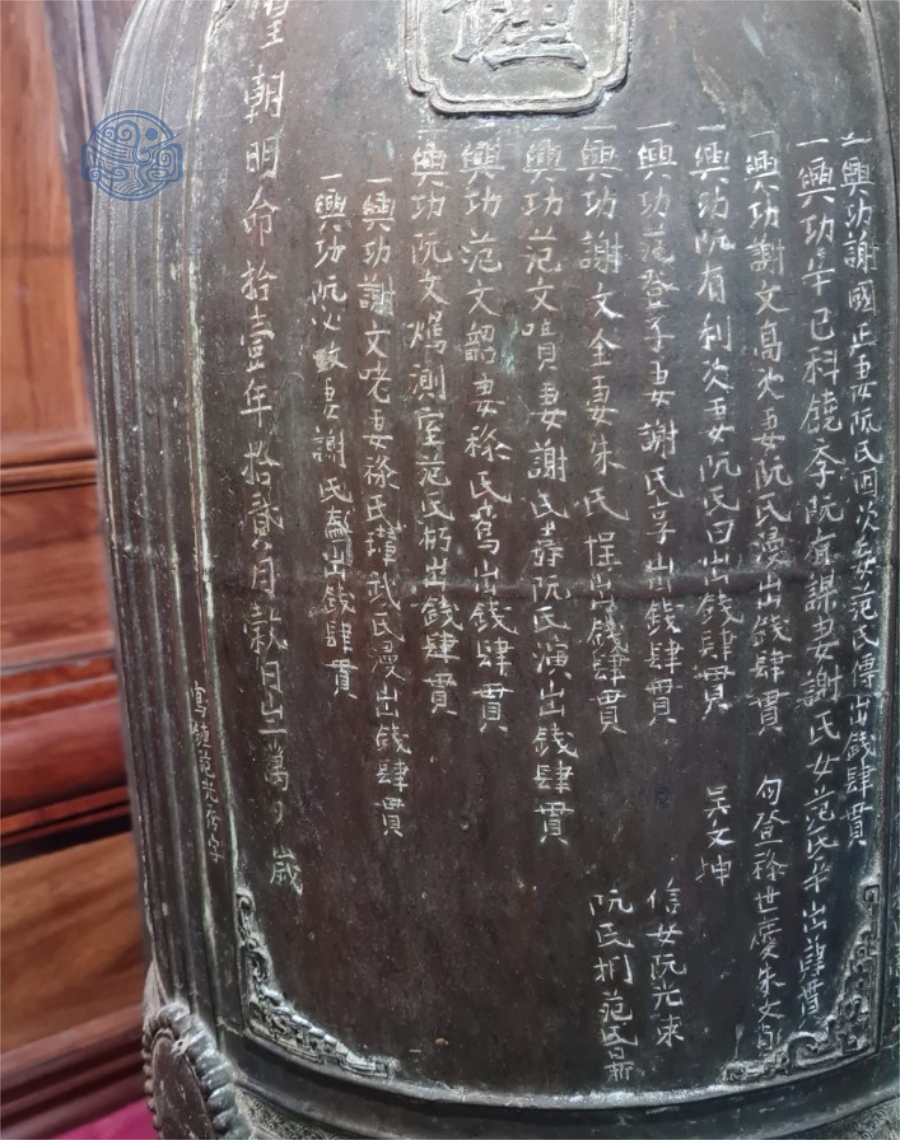 一興功謝國正妻阮氏因次妾范氏傳出錢肆貫
一興功年已科饒李阮有謀妻謝氏女范氏年出肆貫
一興功謝文高次妻阮氏漫出錢肆貫
登祿世慶朱文
一興功阮有利次妻阮氏曰出錢肆貫
吳文坤
一興功范登子妻謝氏孚出錢肆貫
信女阮光來
一興功謝文全妻朱氏悜出錢肆貫
阮氏 范氏最
一興功范文 妻謝氏壽阮氏演出錢肆貫
一興功范文韶妻祿氏蔦出錢肆貫
一興功阮文 測室范氏 出錢肆貫
一興功謝文 妻祿氏 武氏漫出錢肆貫
一興功阮必致妻謝氏 出錢肆貫
皇朝明命拾壹年拾貳月穀日 萬歲
寫 范光 字